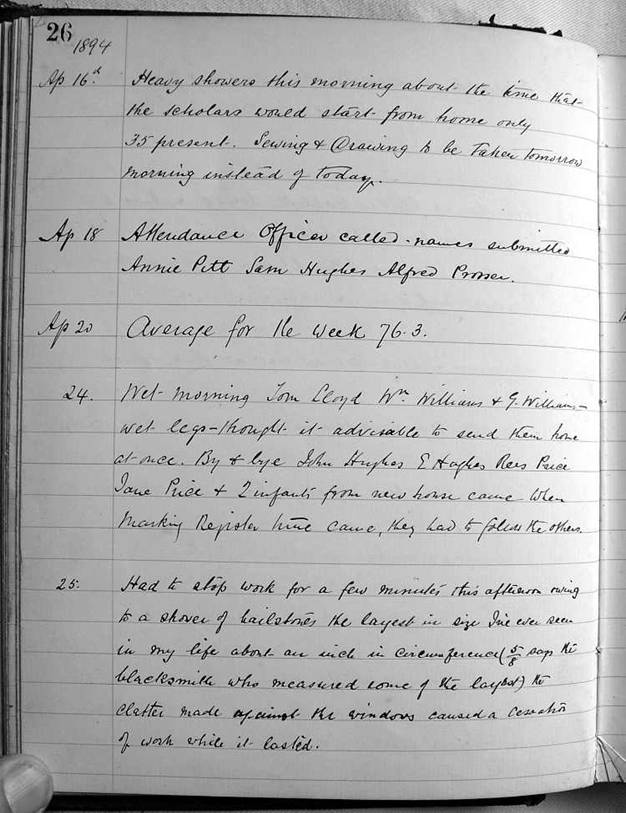 26
1894
Ap 16d Heavy showers this morning about the time that
the scholars would start from home only
35 present. Sewing & Drawing to be taken tomorrow
morning instead of today.
Ap 18 Attendance Officer called - names submitted
Annie Pitt Sam Hughes Alfred Prosser.
Ap 20 Average for the week 76.3.
24. Wet morning Tom Lloyd Wm Williams & G. Williams -
wet legs - thought it advisable to send them home
at once. By & bye John Hughes E Hughes Rees Price
Jane Price & 2 infants from new house came when
Marking Register time came, they had to follow the others.
25. Had to stop work for a few minutes this afternoon owing
to a shower of hailstones the largest in size I've ever seen
in my life about an inch in circumference (5/8 says the
blacksmith who measured some of the largest) the
clatter made against the windows caused a cessation
of work while it lasted.